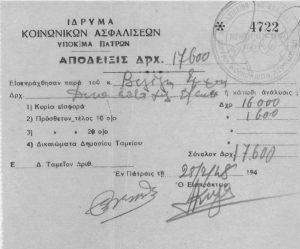 ΙΔΡΥΜΑ
ΚΟΙΝΩΝΙΚΩΝ ΑΣΦΑΛΙΣΕΩΝ
ΥΠΟΚ/ΜΑ ΠΑΤΡΩΝ
* 4722
ΑΠΟΔΕΙΞΙΣ ΔΡΧ. 17600
Εἰσεπράχθησαν παρὰ τοῦ κ.
Δρχ. ἡ κάτωθι ἀνάλυσις :
1) Κυρία εἰσφορὰ Δρχ 16000
2) Πρόσθετον τέλος 10 ο)ο » 1600
3) » » 20 ο)ο »
4) Δικαιώματα Δημοσίου Ταμείου »
Σύνολον Δρχ. 17.600
Ε Δ. Ταμεῖον Ἀριθ.
Ἐν Πάτραις τῇ 20/2/48 194
Ὁ Εἰσπράκτωρ